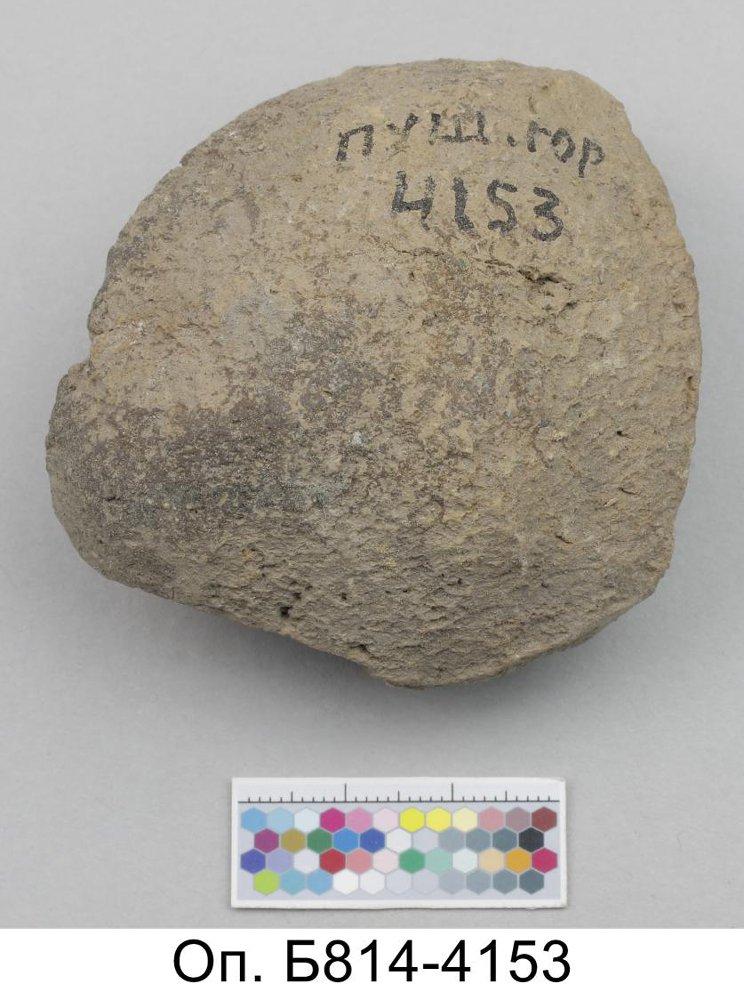 пуш. гор
4153
Оп. Б814-4153